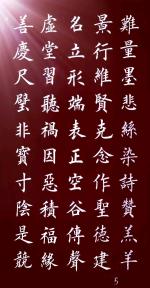 難量墨悲絲染詩贊羔羊
景行維賢克念作聖德建
名立形端表正空谷傳聲
虛堂習聽禍因惡積福緣
善慶尺璧非寶寸陰是競
5